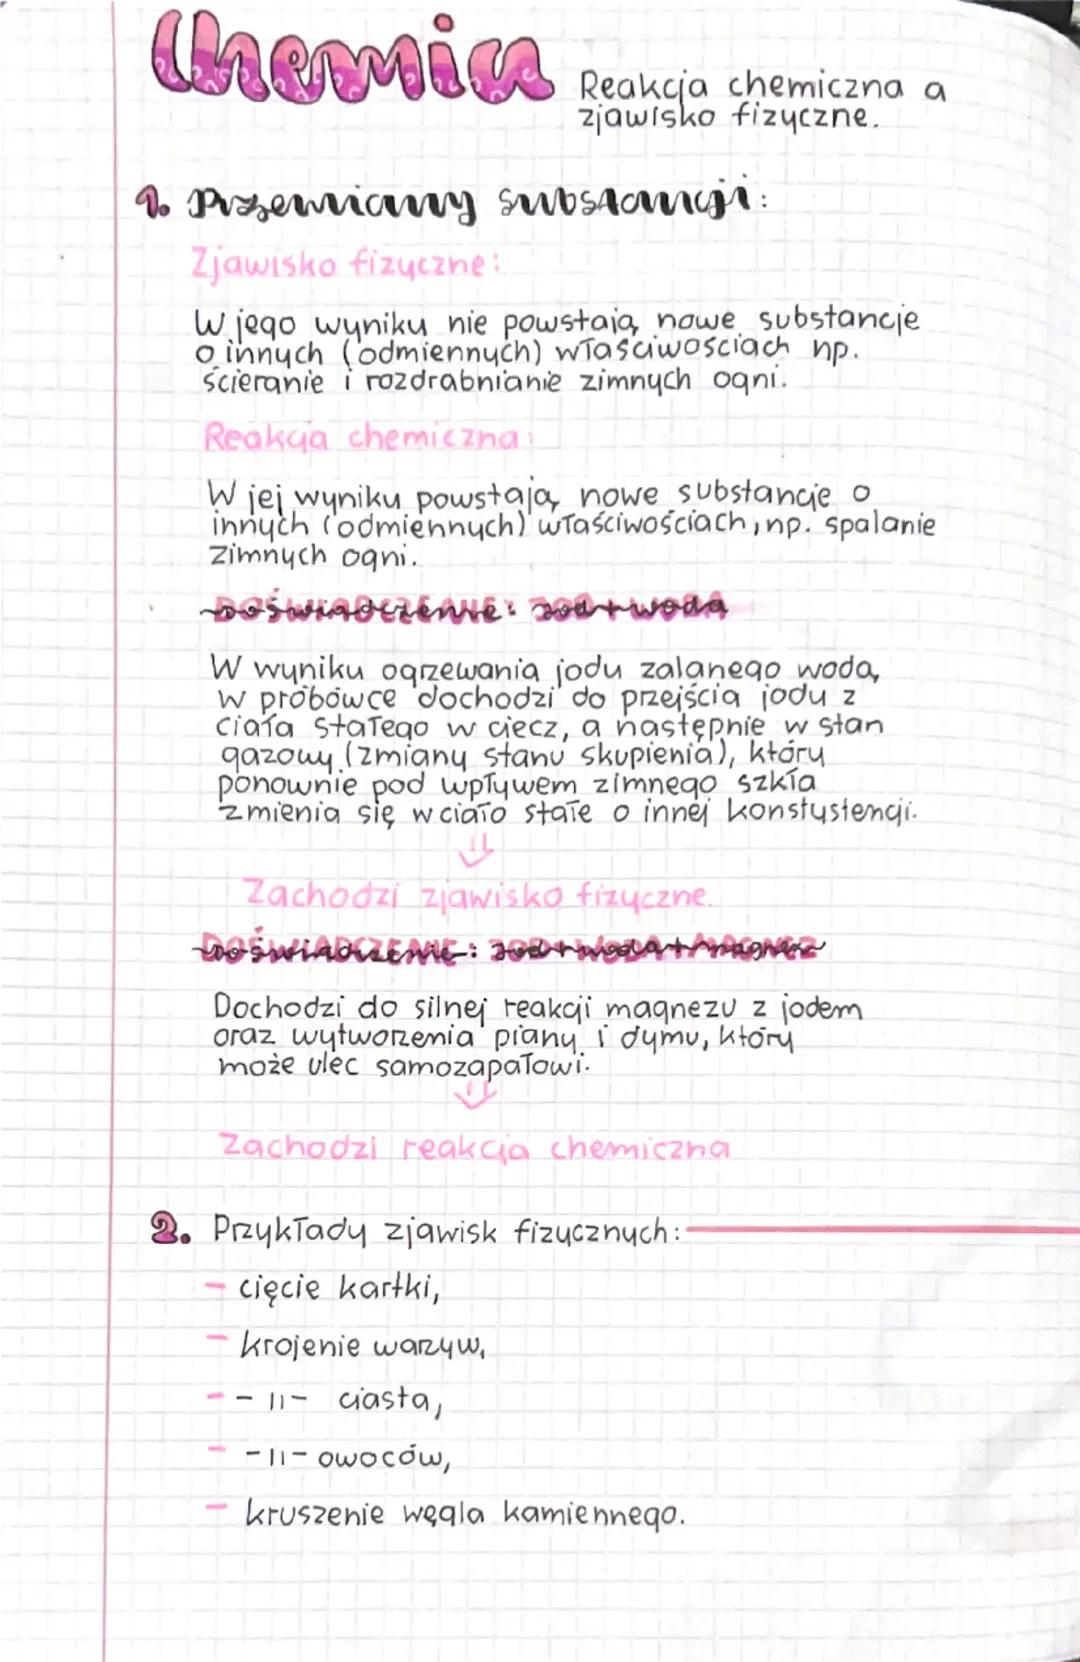 Chemia
Reakcja chemiczna a
zjawisko fizyczne.
1. Przemiany substancji:
Zjawisko fizyczne:
W jego wyniku nie powstają nowe substancje
o innych (odmiennych) właściwościach np.
ścieranie i rozdrabnianie zimnych ogni.
Reakcja chemiczna:
W jej wyniku powstają nowe substancje o
innych (odmiennych) właściwościach, np. spalanie
zimnych ogni.
Doświadczenie: Jod + woda
W wyniku ogrzewania jodu zalanego wodą
w próbówce dochodzi do przejścia jodu z
ciała stałego w ciecz, a następnie w stan
gazowy (zmiany stanu skupienia), który
ponownie pod wpływem zimnego szkła
zmienia się w ciało stałe o innej konstystencji.
⇓
Zachodzi zjawisko fizyczne.
Doświadczenie: Jod + woda + magnez
Dochodzi do silnej reakcji magnezu z jodem
oraz wytworzenia piany i dymu, który
może ulec samozapałowi.
⇓
Zachodzi reakcja chemiczna
2. Przykłady zjawisk fizycznych:
- cięcie kartki,
- krojenie warzyw,
- -11- ciasta,
- -11- owoców,
- kruszenie węgla kamiennego.